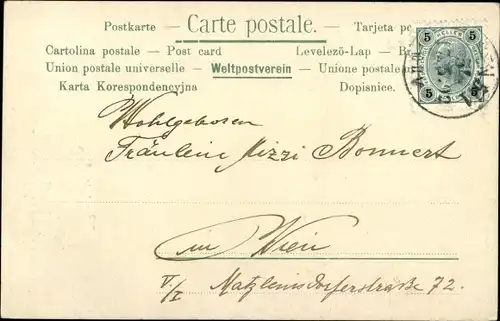 Postkarte — Carte postale. — Tarjeta po
Cartolina postale — Post card Levelezö-Lap — Br
Union postale universelle — Weltpostverein — Unione postale
Karta Korespondencyjna Dopisnice.
5 HELLER 5
5 5
Wohlgeboren
Fräulein Mizzi Bonnert
in Wien
V/I Matzleinsdorferstraße 72.